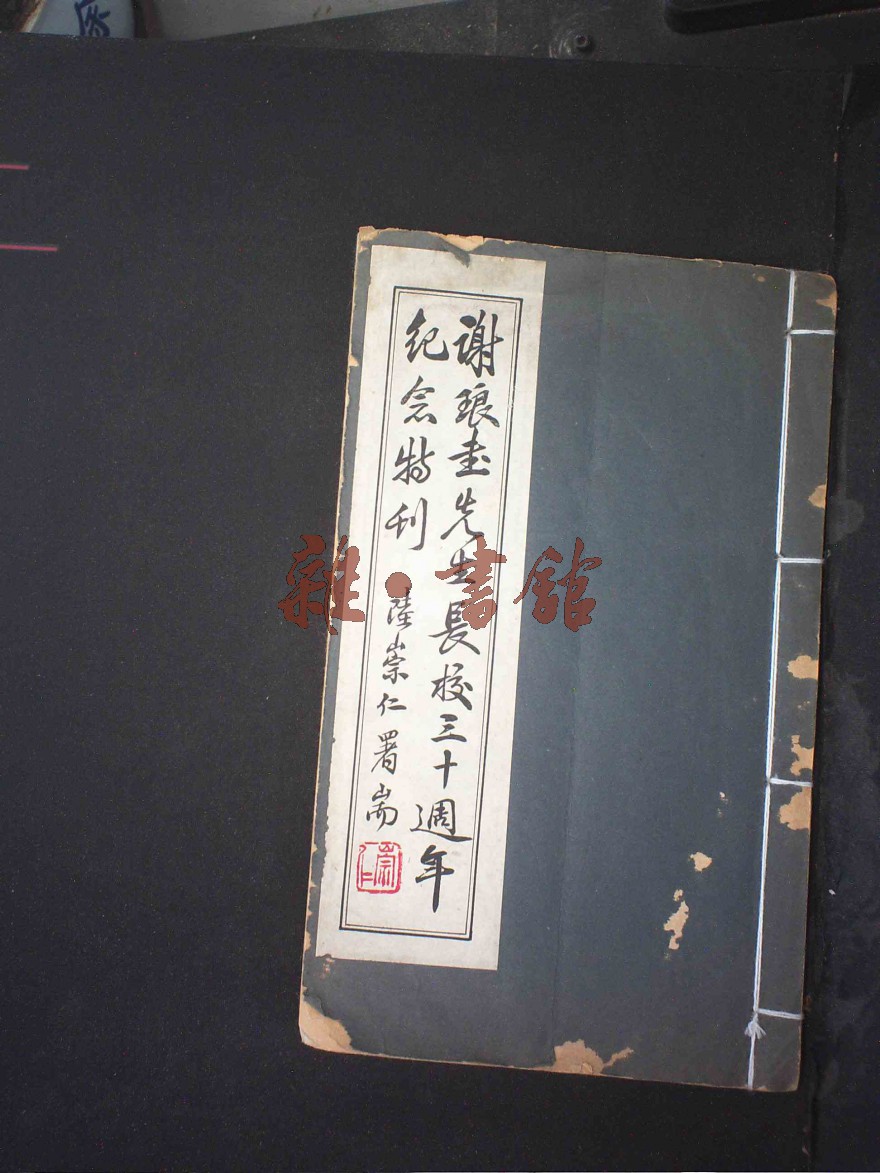 谢琅书先生長校三十週年
紀念特刊
陸崇仁署耑
崇仁
雜·書館